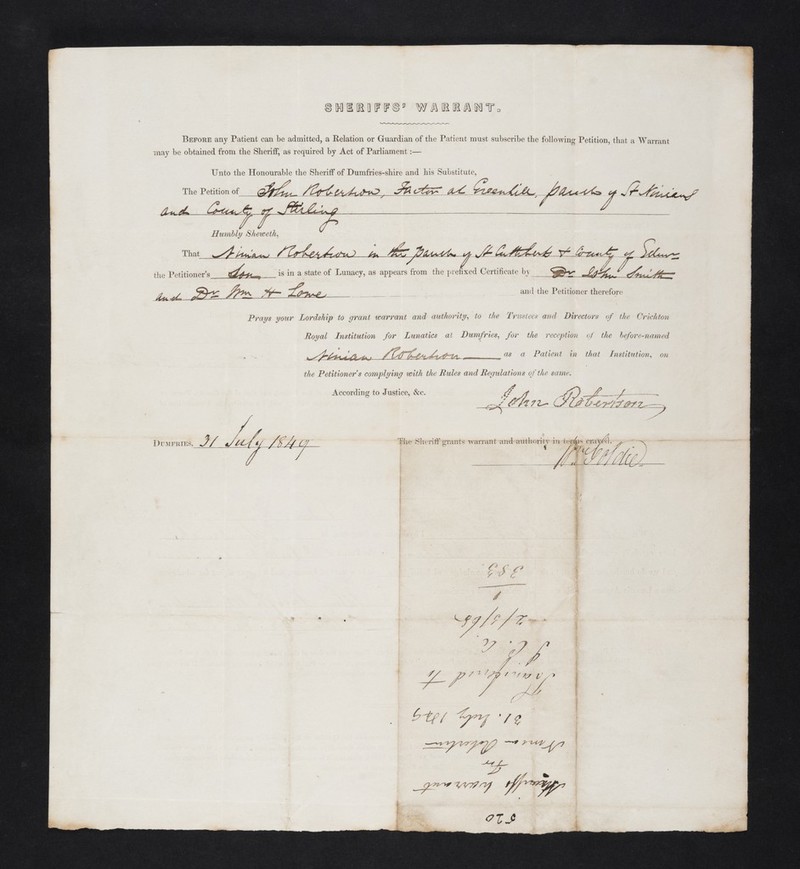 SHERIFFS' WARRANT.
BEFORE any Patient can be admitted, a Relation or Guardian of the Patient must subscribe the following Petition, that a Warrant
may be obtained from the Sheriff, as required by Act of Parliament :—
Unto the Honourable the Sheriff of Dumfries-shire and his Substitute,
The Petition of John Robertson, Factor at Greenhill, parish of St Ninians
and County of Stirling
Humbly Sheweth,
That Ninian Robertson in the parish of St Cuthbert & County of Edinr
the Petitioner's Son is in a state of Lunacy, as appears from the prefixed Certificate by Dr John Smith
and Dr Wm H Lowe and the Petitioner therefore
Prays your Lordship to grant warrant and authority, to the Trustees and Directors of the Crichton
Royal Institution for Lunatics at Dumfries, for the reception of the before-named
Ninian Robertson as a Patient in that Institution, on
the Petitioner's complying with the Rules and Regulations of the same.
According to Justice, &c. John Robertson
DUMFRIES, 31 July 1849 The Sheriff grants warrant and authority in terms craved.
Wm Goldie
520
Sheriffs Warrant
For
Ninian Robertson
31. July 1849
Transferred to
2/3/65
383